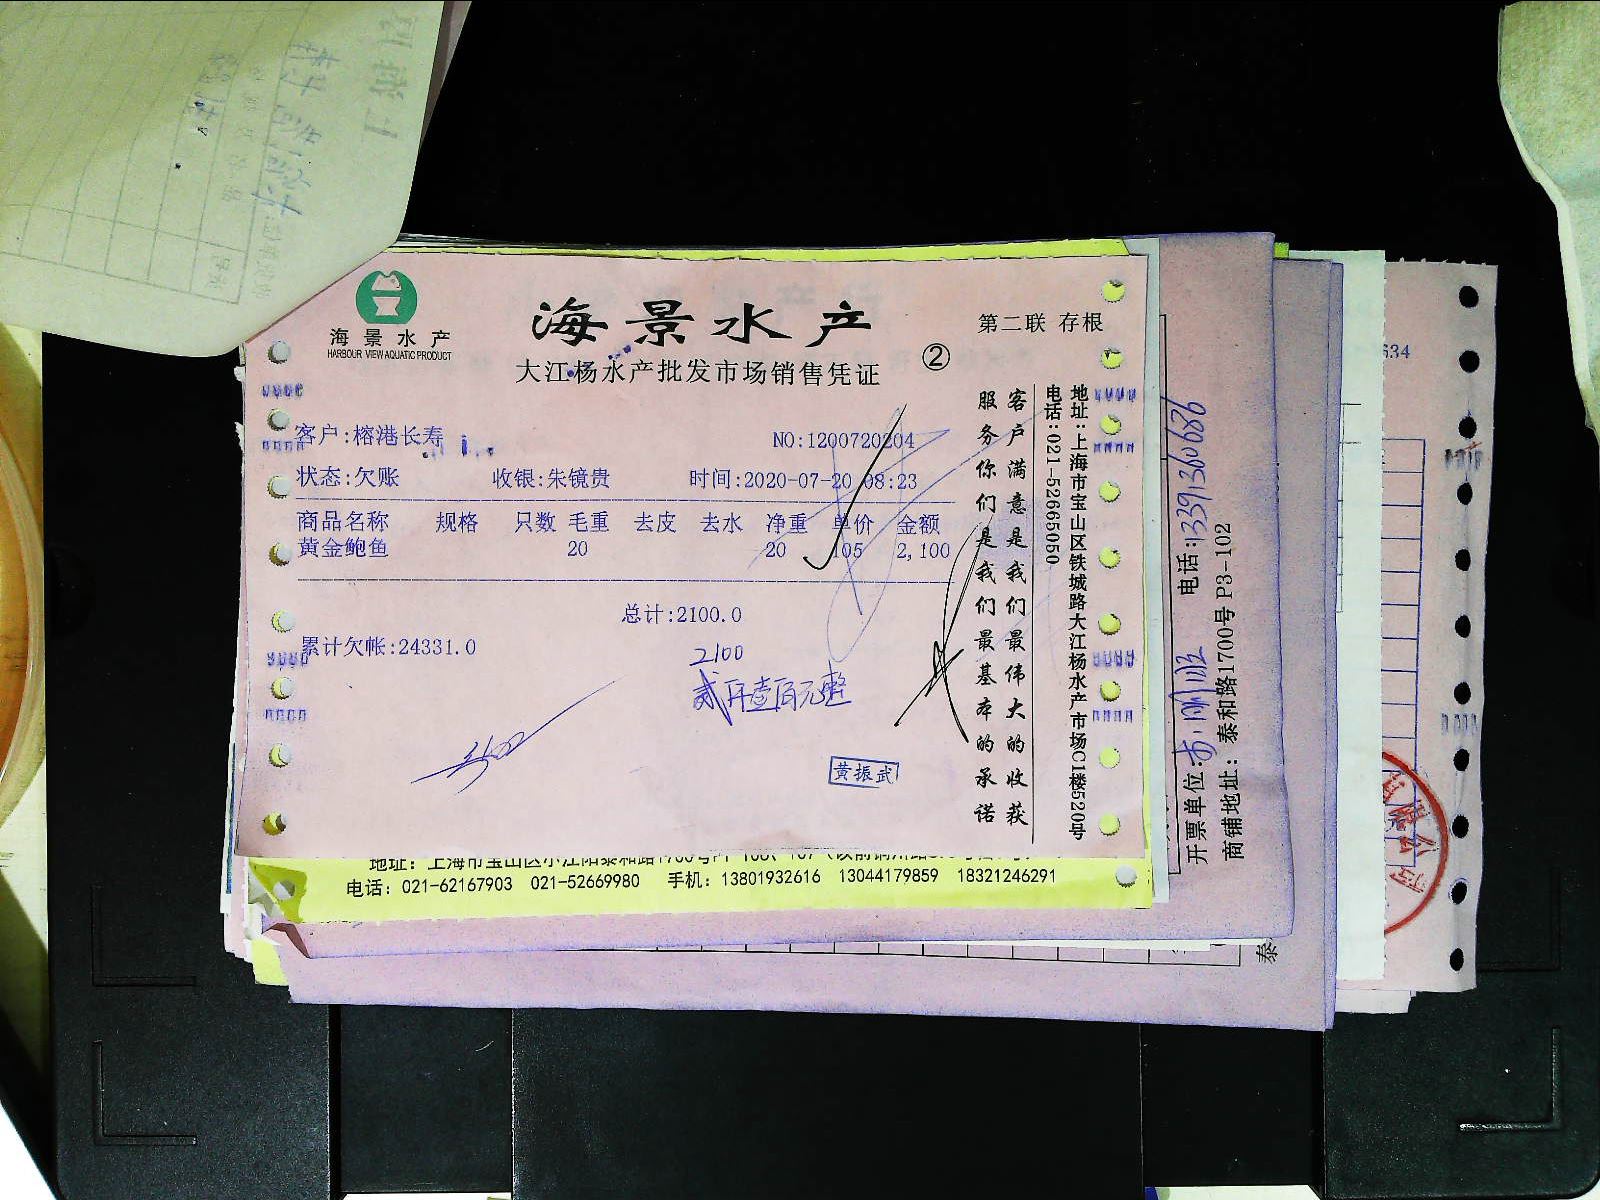 海景水产
HARBOUR VIEW AQUATIC PRODUCT
海景水产
第二联 存根
大江杨水产批发市场销售凭证
②
客户:榕港长寿
NO:1200720204
状态:欠账 收银:朱镜贵 时间:2020-07-20 08:23
商品名称 规格 只数 毛重 去皮 去水 净重 单价 金额
黄金鲍鱼 20 20 105 2,100
总计:2100.0
累计欠帐:24331.0
2100
贰仟壹佰元整
黄振武
客户满意是我们最伟大的收获
服务你们是我们最基本的承诺
地址:上海市宝山区铁城路大江杨水产市场C1楼520号
电话:021-52665050
电话:021-62167903 021-52669980 手机:13801932616 13044179859 18321246291
开票单位:
电话:13391360686
商铺地址:泰和路1700号 P3-102
634
泰